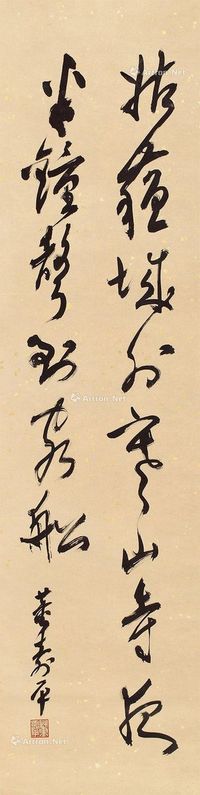 姑蘇城外寒山寺夜
半鐘聲到客船
董壽平
Artron.Net
Artron.Net
Artron.Net